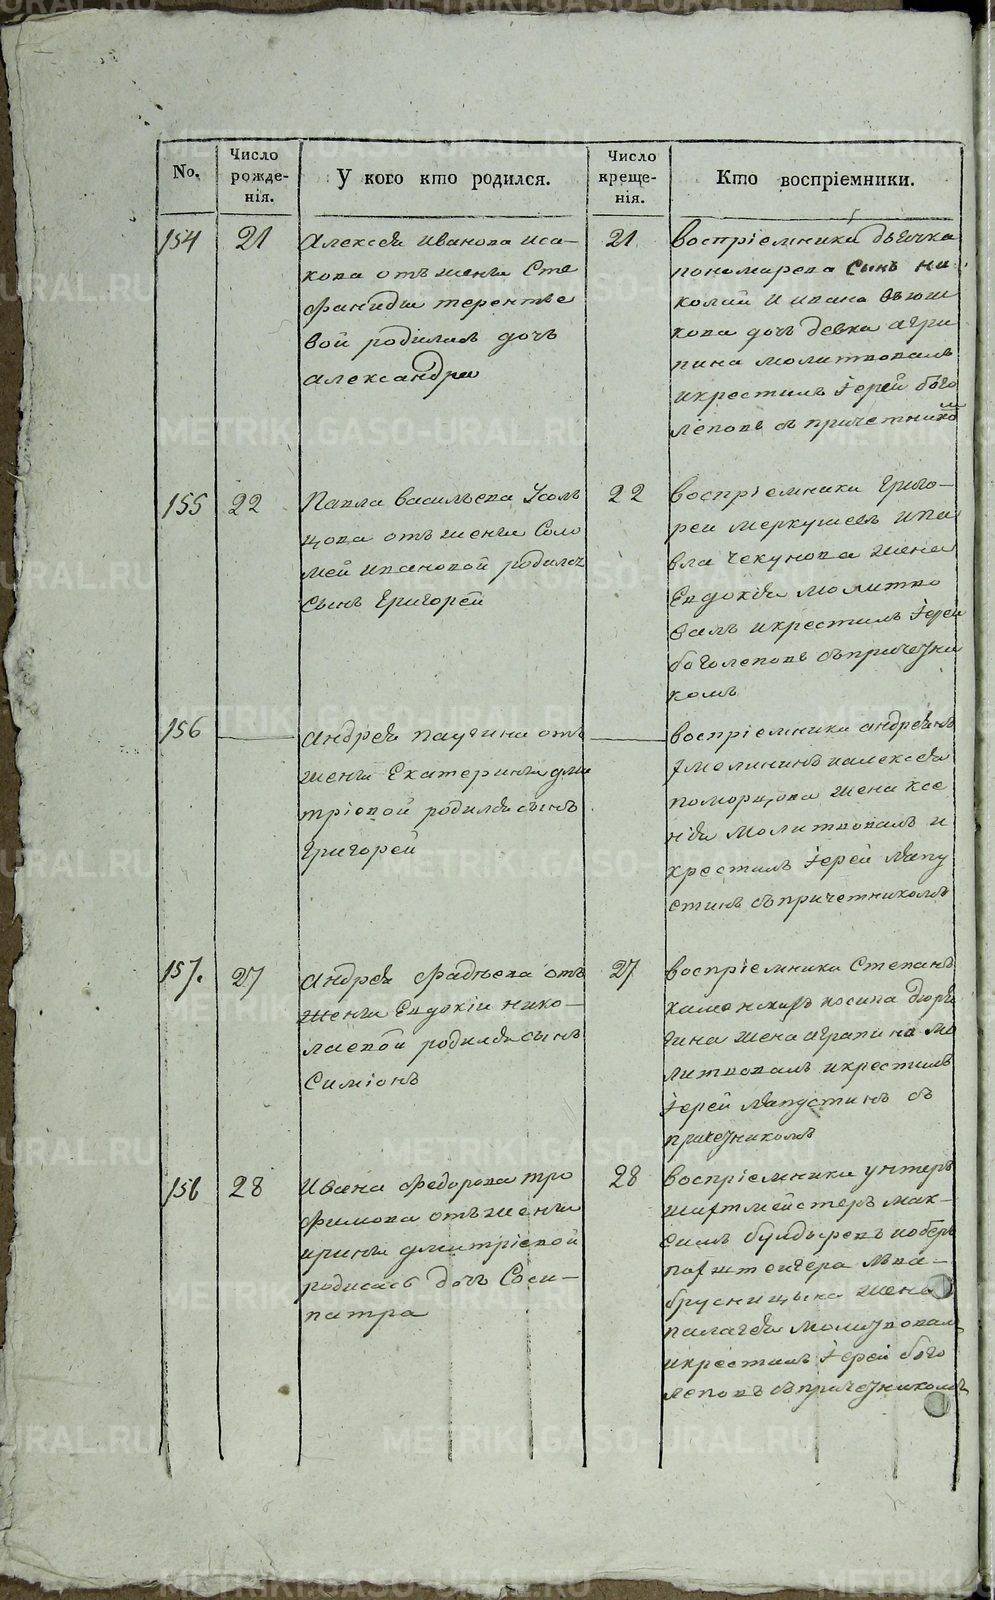 No.
Число рожде-нія.
У кого кто родился.
Число креще-нія.
Кто воспріемники.
154
21
Алексѣя Иванова Иса-
кова отъ жены Сте
фаниды теренте
вой родилась дочь
александра
21
воспріемники дьячка
пономарева сынъ ни
колай и ивана
кова дочь девка агри
пина молитвовалъ
и крестилъ Іерей бого
леповъ съ причетнико
м
155
22
Павла васильева Усоль
цова отъ жены Соло
меи ивановой родился
сынъ григорей
22
воспріемники григо-
реи меркушевъ и па
вла чекунова жена
Евдокѣя молитво
валъ и крестилъ Іерей
боголеповъ съ причетни
комъ
156
андрея паучина отъ
жены Екатерины дми
тріевой родился сынъ
григорей
воспріемники андреянъ
и алексѣя
поморцова жена ксе
нѣя молитвовалъ и
крестилъ Іерей Лапу
стинъ съ причетникомъ
157.
27
андрея фадѣева отъ
жены Евдокіи нико-
лаевой родился сынъ
Симіонъ
27
воспріемники Степанъ
каменскихъ иосипа дюря
гина жена аграпина мо
литвовалъ и крестилъ
Іерей Лапустинъ съ
причетникомъ
158
28
Ивана Федорова тро
фимова отъ жены
ирины дмитріевой
родилась дочь Соси-
патра
28
воспріемники унтеръ
шихтмейстеръ мак-
симъ булдыревъ и оберъ
штейгера Льва
брусницына жена
палагѣя молитвовалъ
и крестилъ Іерей бого
леповъ съ причетникомъ
METRIKI.GASO-URAL.RU